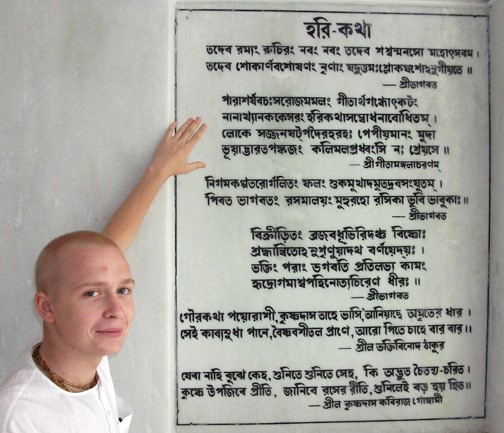 হরি-কথা
তদেব রম্যং রুচিরং নবং নবং তদেব শশ্বন্মনসো মহোৎসবম।
তদেব শোকার্ণবশোষণং নৃণাং যদুত্তমঃশ্লোকযশোহনুগীয়তে॥
— শ্রীভাগবত
পারাশর্য্যবচঃসরোজমমলং গীতার্থগন্ধোৎকটং
নানাখ্যানককেসরং হরিকথাসম্বোধনাবোধিতম্।
লোকে সজ্জনষট্‌পদৈরহরহঃ পেপীয়মানং মুদা
ভূয়াদ্ভারতপঙ্কজং কলিমলপ্রধ্বংসি নঃ শ্রেয়সে॥
— শ্রীগীতামঙ্গলাচরণম্
নিগমকল্পতরোর্গলিতং ফলং শুকমুখাদমৃতদ্রবসংযুতম্।
পিবত ভাগবতং রসমালয়ং মুহুরহো রসিকা ভুবি ভাবুকাঃ॥
— শ্রীভাগবত
বিক্রীড়িতং ব্রজবধূভিরিদঞ্চ বিষ্ণোঃ
শ্রদ্ধান্বিতোহনুশৃণুয়াদথ বর্ণয়েদ্যঃ।
ভক্তিং পরাং ভগবতি প্রতিলভ্য কামং
হৃদ্রোগমাশ্বপহিনোত্যচিরেণ ধীরঃ॥
— শ্রীভাগবত
গৌরকথা পয়োরাশী, কৃষ্ণদাস তাহে ভাসি, আনিয়াছে অমৃতের ধার।
সেই কাব্যসুধা পানে, বৈষ্ণবশীতল প্রাণে, আরো পিতে চাহে বার বার॥
— শ্রীল ভক্তিবিনোদ ঠাকুর
যেবা নাহি বুঝে কেহ, শুনিতে শুনিতে সেহ, কি অদ্ভুত চৈতন্য-চরিত।
কৃষ্ণে উপজিবে প্রীতি, জানিবে রসের রীতি, শুনিলেই বড় হয় হিত॥
— শ্রীল কৃষ্ণদাস কবিরাজ গোস্বামী